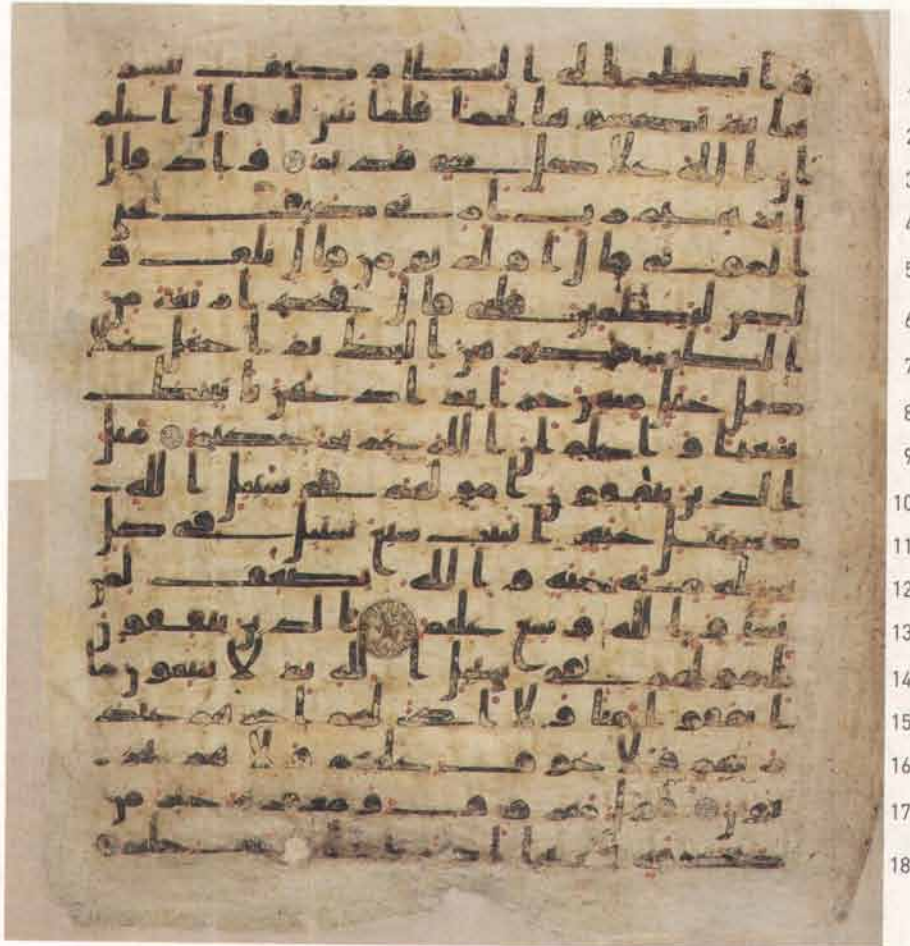 1 وانظر الى العظام كيف ننشز
2 ها ثم نكسوها لحما فلما تبين له قال اعلم
3 ان الله على كل شيء قدير واذ قال
4 ابرهيم رب ارني كيف تحي
5 الموتى قال اولم تؤمن قال بلى و
6 لكن ليطمئن قلبي قال فخذ اربعة من
7 الطير فصرهن اليك ثم اجعل على
8 كل جبل منهن جزءا ثم ادعهن ياتينك
9 سعيا واعلم ان الله عزيز حكيم مثل
10 الذين ينفقون امولهم في سبيل الله
11 كمثل حبة انبتت سبع سنابل في كل
12 سنبلة مائة حبة والله يضعف لمن
13 يشا والله وسع عليم الذين ينفقون
14 امولهم في سبيل الله ثم لا يتبعون ما
15 انفقوا منا ولا اذى لهم اجرهم عند
16 ربهم ولا خوف عليهم ولا هم يحز
17 نون قول معروف ومغفرة خير من
18 صدقة يتبعها اذى والله غني حليم